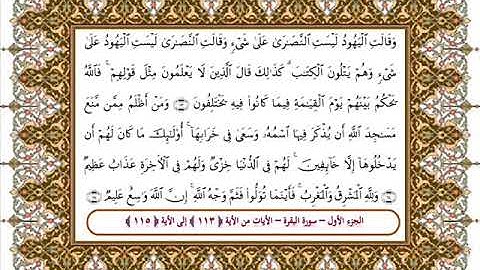 وَقَالَتِ الْيَهُودُ لَيْسَتِ النَّصَٰرَىٰ عَلَىٰ شَىْءٍ وَقَالَتِ النَّصَٰرَىٰ لَيْسَتِ الْيَهُودُ عَلَىٰ
شَىْءٍ وَهُمْ يَتْلُونَ الْكِتَٰبَ ۗ كَذَٰلِكَ قَالَ الَّذِينَ لَا يَعْلَمُونَ مِثْلَ قَوْلِهِمْ ۚ فَاللَّهُ
يَحْكُمُ بَيْنَهُمْ يَوْمَ الْقِيَٰمَةِ فِيمَا كَانُوا فِيهِ يَخْتَلِفُونَ ﴿١١٣﴾ وَمَنْ أَظْلَمُ مِمَّن مَّنَعَ
مَسَٰجِدَ اللَّهِ أَن يُذْكَرَ فِيهَا اسْمُهُ وَسَعَىٰ فِى خَرَابِهَا ۚ أُولَٰئِكَ مَا كَانَ لَهُمْ أَن
يَدْخُلُوهَا إِلَّا خَائِفِينَ ۚ لَهُمْ فِى الدُّنْيَا خِزْىٌ وَلَهُمْ فِى الْآخِرَةِ عَذَابٌ عَظِيمٌ
﴿١١٤﴾ وَلِلَّهِ الْمَشْرِقُ وَالْمَغْرِبُ ۚ فَأَيْنَمَا تُوَلُّوا فَثَمَّ وَجْهُ اللَّهِ ۚ إِنَّ اللَّهَ وَٰسِعٌ عَلِيمٌ ﴿١١٥﴾
الجزء الأول – سورة البقرة – الآيات من الآية ﴿ ١١٣ ﴾ إلى الآية ﴿ ١١٥ ﴾